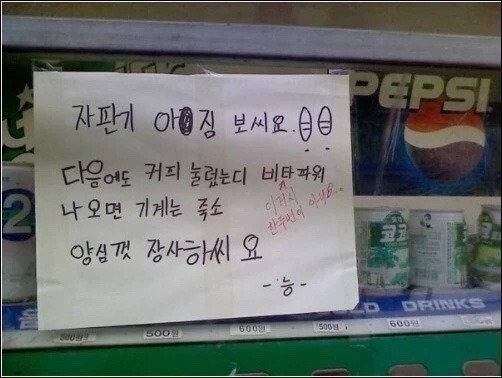 PEPSI
자판기 아짐 보씨요.
다음에도 커피 눌렀는디 비타파워
나오면 기계는 죽소
이것시
한두번이 아니요..
양심껏 장사하씨요
-능-
COLD DRINKS
500원 500원 600원 500원 600원